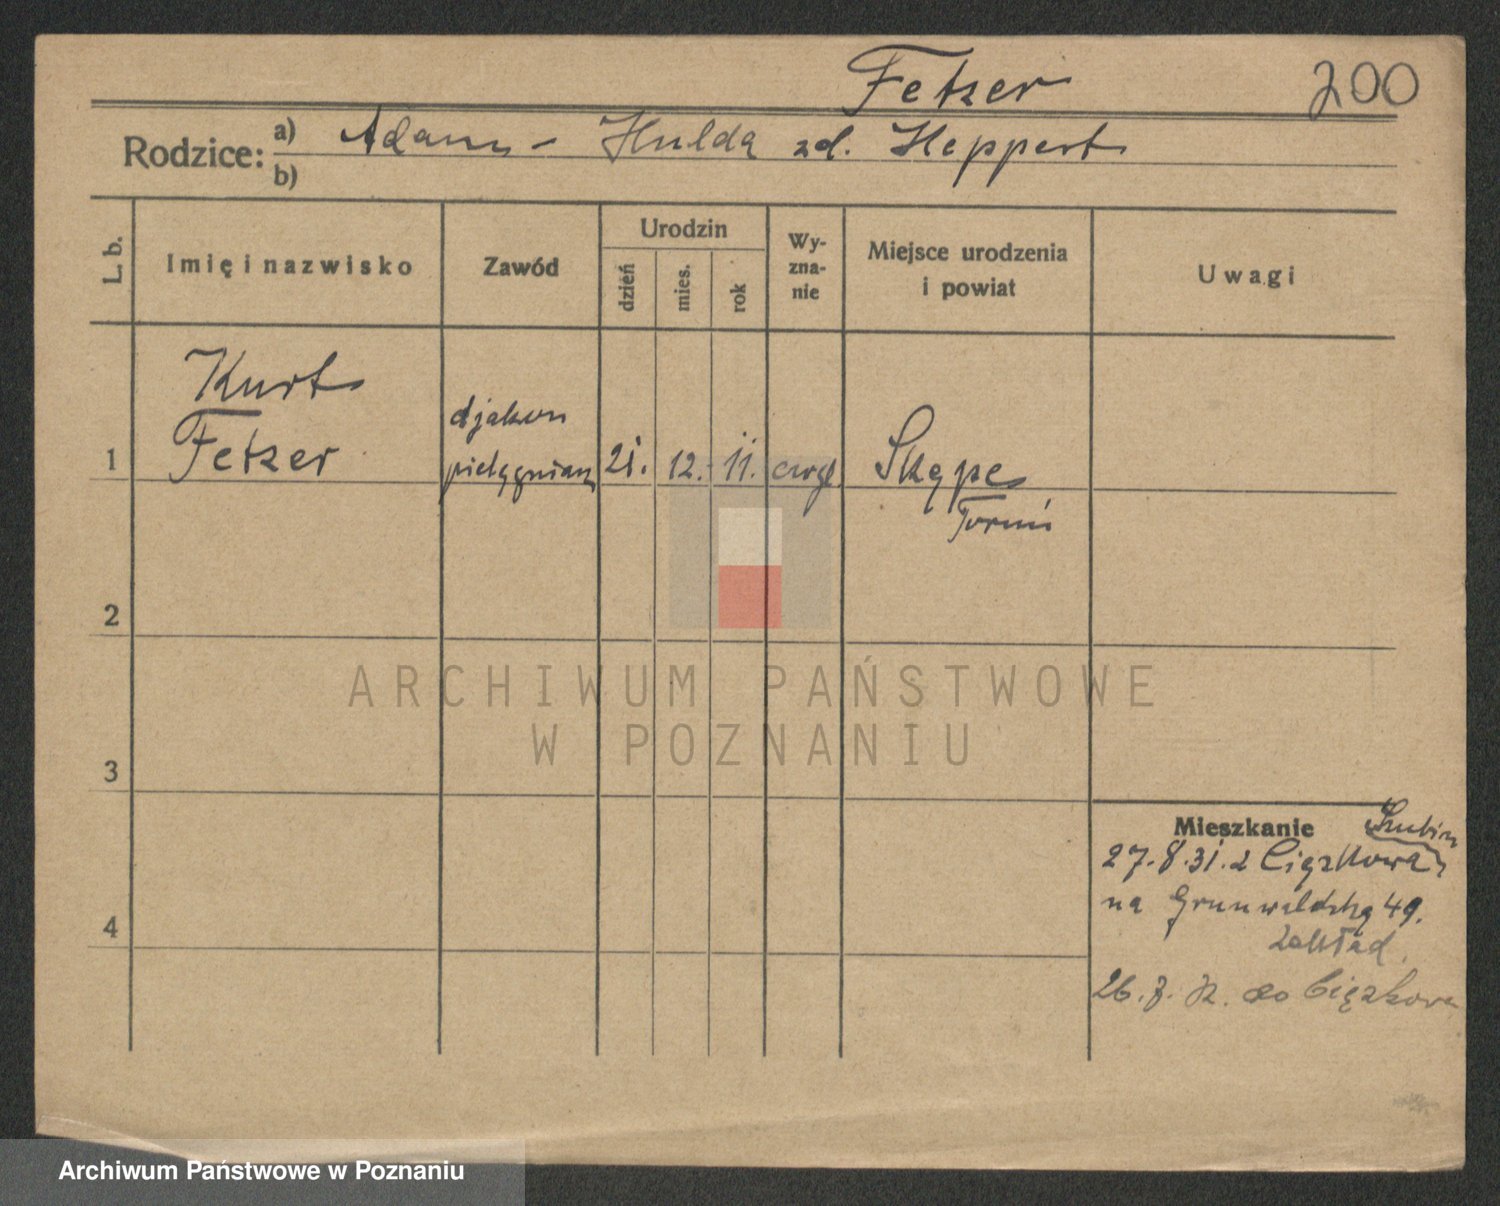 Fetzer
200
Rodzice: a) Adam - Hulda zd. Heppert
b)
L. b.
Imię i nazwisko
Zawód
Urodzin
dzień
mies.
rok
Wy-
zna-
nie
Miejsce urodzenia
i powiat
Uwagi
Kurt
Fetzer
djakon
pielęgniarz
1
21. 12. 11. ewgl
Skępe
Toruń
2
ARCHIWUM PAŃSTWOWE
W POZNANIU
3
Mieszkanie
Szubin
27.8.31. z Ciężkowa
na Grunwaldzką 49.
Zakład
4
26. do Ciężkowa
Archiwum Państwowe w Poznaniu